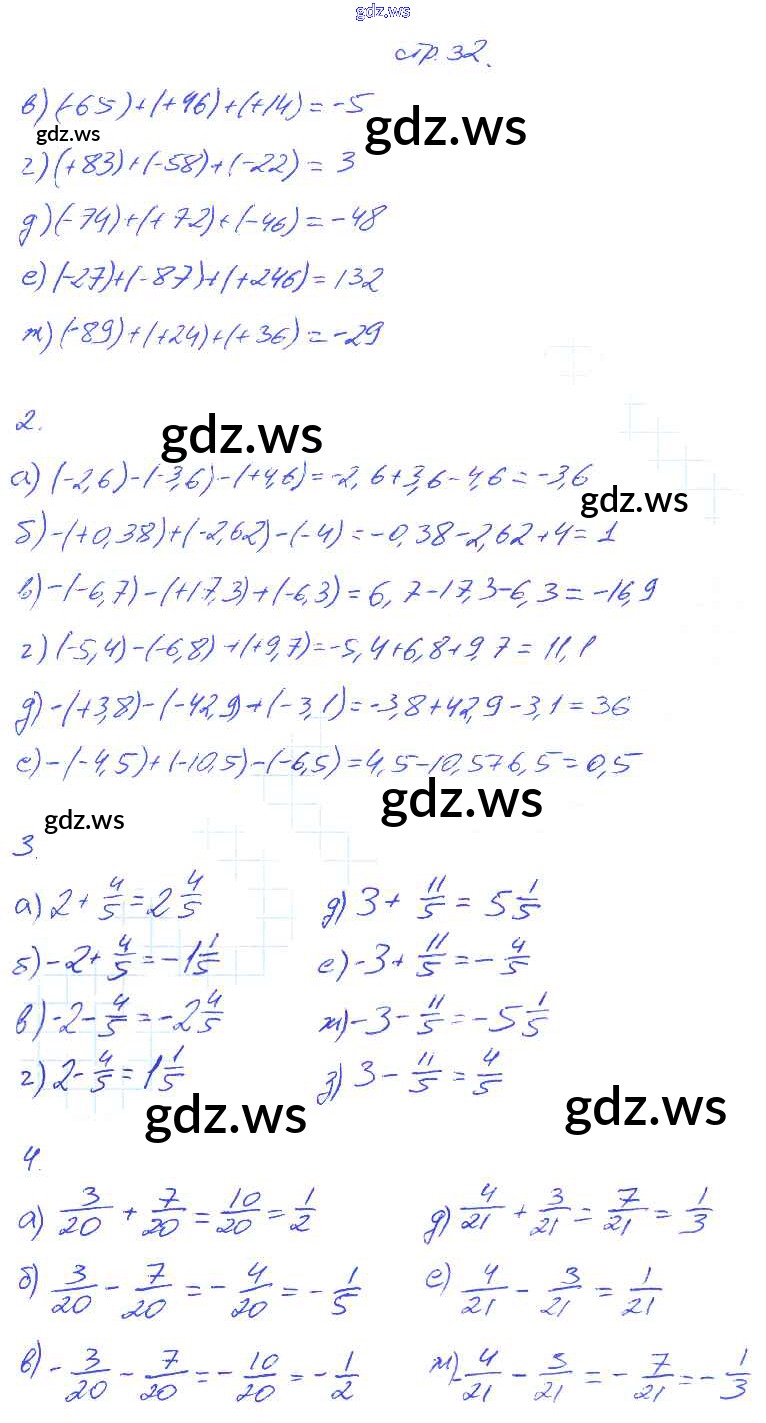 gdz.ws
стр. 32.
в) (-65)+(+46)+(+14) = -5
gdz.ws
gdz.ws
г) (+83)+(-58)+(-22) = 3
д) (-74)+(+72)+(-46) = -48
е) (-27)+(-87)+(+246) = 132
ж) (-89)+(+24)+(+36) = -29
2.
gdz.ws
а) (-2,6)-(-3,6)-(+4,6) = -2,6+3,6-4,6 = -3,6
gdz.ws
б) -(+0,38)+(-2,62)-(-4) = -0,38-2,62+4 = 1
в) -(-6,7)-(+17,3)+(-6,3) = 6,7-17,3-6,3 = -16,9
г) (-5,4)-(-6,8)+(+9,7) = -5,4+6,8+9,7 = 11,1
д) -(+3,8)-(-42,9)+(-3,1) = -3,8+42,9-3,1 = 36
е) -(-4,5)+(-10,5)-(-6,5) = 4,5-10,5+6,5 = 0,5
gdz.ws
gdz.ws
3.
а) 2 + 4/5 = 2 4/5
д) 3 + 11/5 = 5 1/5
б) -2 + 4/5 = -1 1/5
е) -3 + 11/5 = -4/5
в) -2 - 4/5 = -2 4/5
ж) -3 - 11/5 = -5 1/5
г) 2 - 4/5 = 1 1/5
з) 3 - 11/5 = 4/5
gdz.ws
gdz.ws
4.
а) 3/20 + 7/20 = 10/20 = 1/2
д) 4/21 + 3/21 = 7/21 = 1/3
б) 3/20 - 7/20 = -4/20 = -1/5
е) 4/21 - 3/21 = 1/21
в) -3/20 - 7/20 = -10/20 = -1/2
ж) -4/21 - 3/21 = -7/21 = -1/3